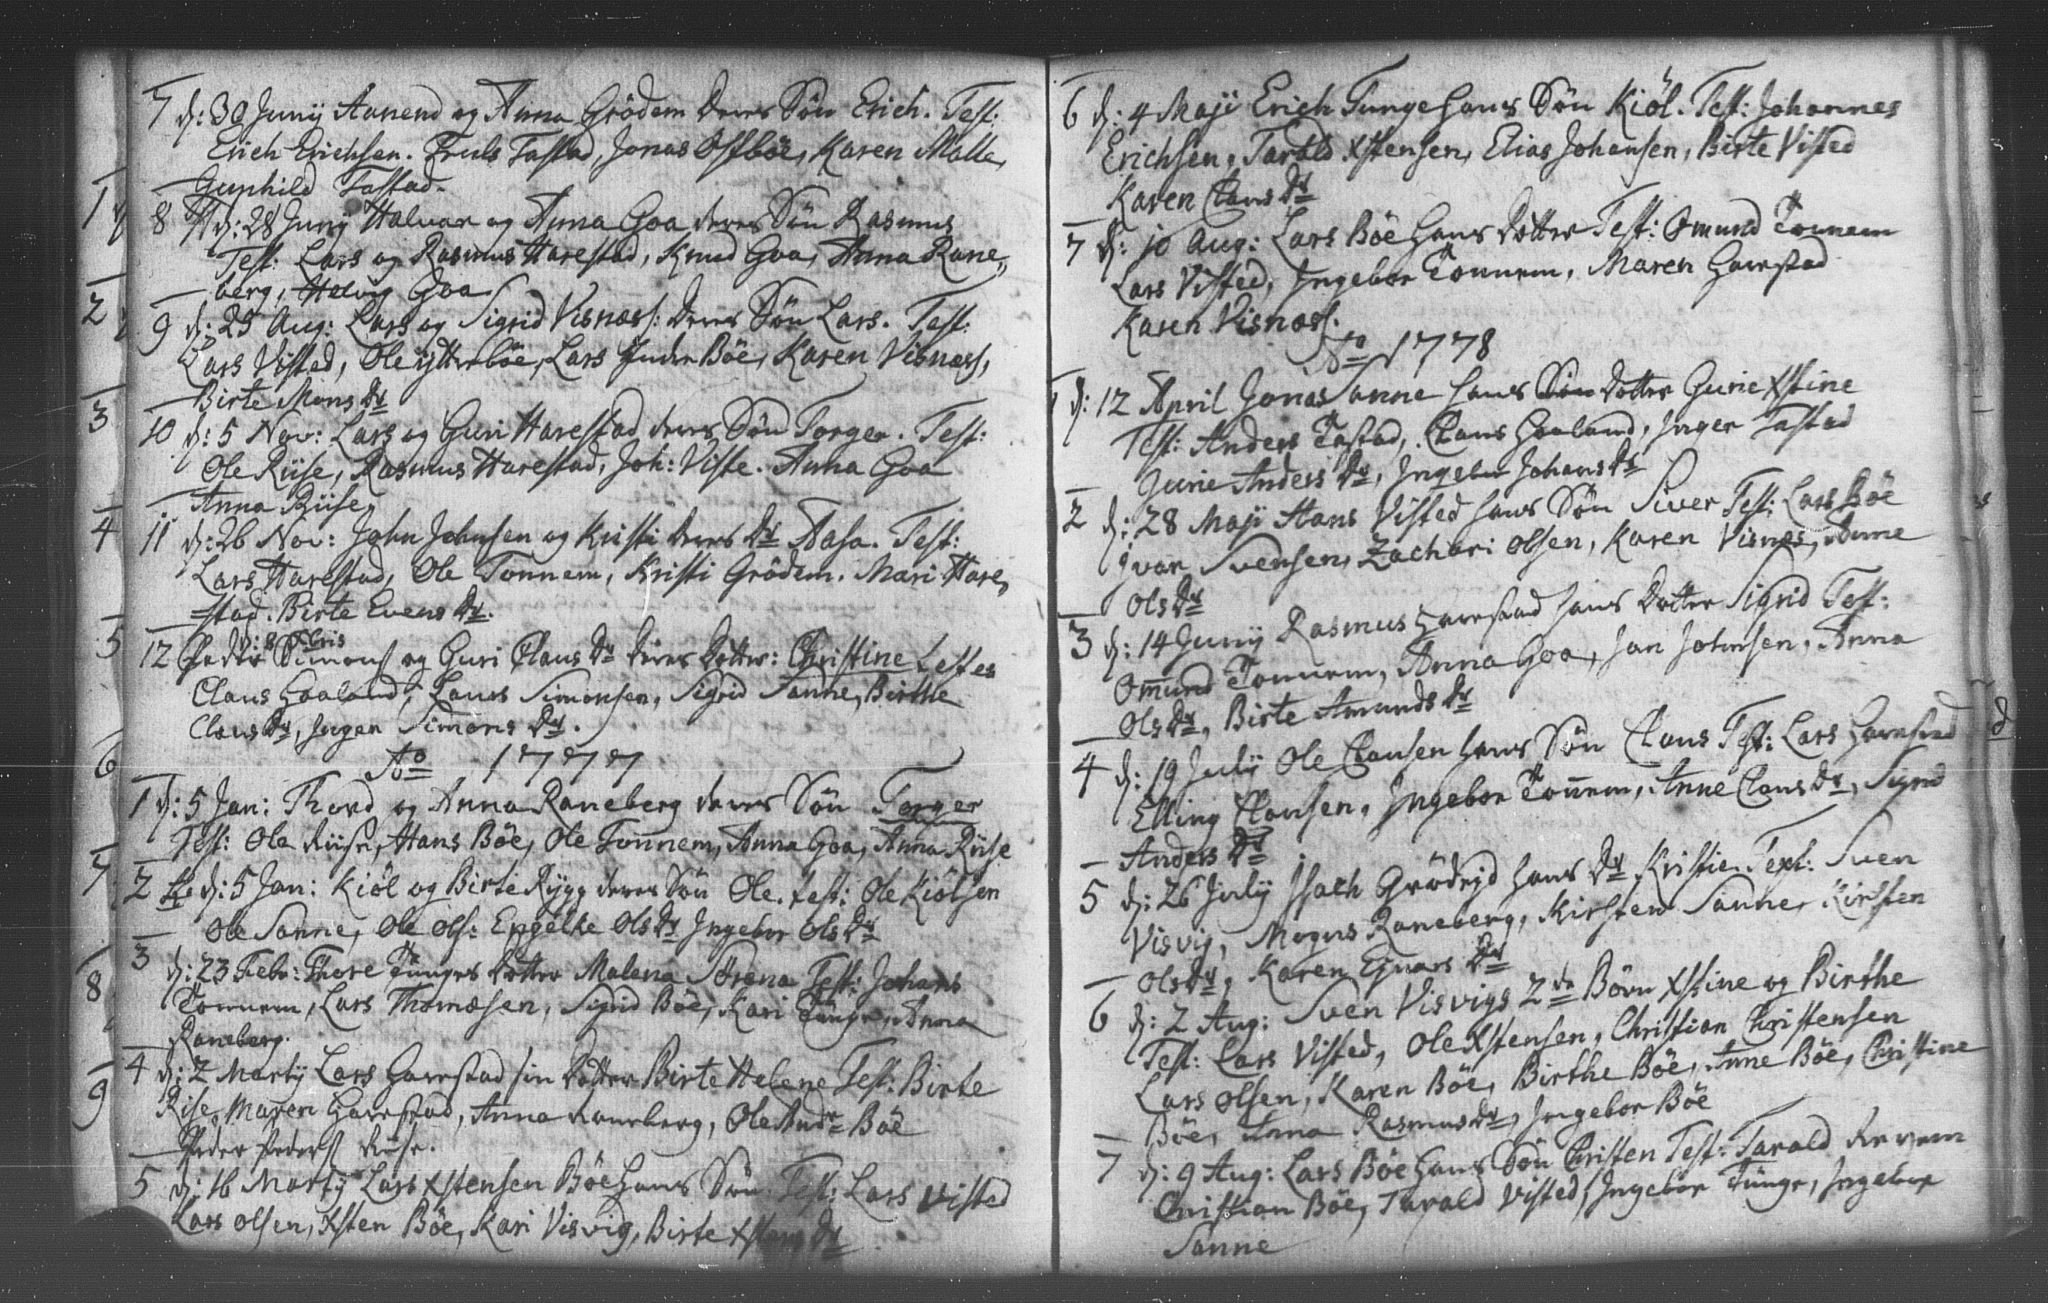 7 d: 30 Junij Aanend og Anna Grödem deres Sön Erich. Test:
Erich Erichsen. Truls Tastad, Jonas Ostböe, Karen Malle,
Gunhild Tastad.
8 d: 28 Junij Halvar og Anna Goa deres Sön Rasmus
Test: Lars og Rasmus Harestad, Knud Goa, Anna Rane,,
berg, Helvig Goa
9 d: 25 Aug: Lars og Sigrid Visnæss: deres Sön Lars. Test:
Lars Visted, Ole ytterböe, Lars Inder Böe, Karen Visnæss,
Birte Mons Dr
10 d: 5 Nov: Lars og Guri Harestad deres Sön Torger. Test:
Ole Riise, Rasmus Harestad, Joh: Viste. Anna Goa
Anna Riise,
11 d: 26 Nov: John Johnsen og Kristi deres Dr Aasa. Test:
Lars Harestad, Ole Tonnem, Kristi Grödem. Mari Hare,,
stad. Birte Evens Dr.
d: 8 Xbris
12 Peder Simons og Guri Claus Dr deres Dotter: Christine Testes
Claus Goaland, Laurs Simonsen, Sigrid Sanne, Birthe
Claus Dr, Inger Simons Dr.
Ao 1777
1 d: 5 Jan: Thord og Anna Raneberg deres Sön Torger
Test: Ole Riise, Hans Böe, Ole Tonnem, Anna Goa, Anna Riise
2 d: 5 Jan: Kiöl og Birte Rygg deres Sön Ole. test: Ole Kiölsen
Ole Sanne, Ole Ols: Engelke Ols Dr Ingebor Ols Dr
3 d: 23 Febr: Thore Tunges Dotter Malena Serena Test: Johans
Tonnem, Lars Thomæsen, Sigrid Böe, Kari Tunge, Anna
Raneberg.
4 d: 2 Martij Lars Harestad sin Dotter Birte Helene Test: Birte
Rise, Maren Harestad, Anna Raneberg, Ole Andr Böe
Peder Peders Riise.
5 d: 16 Martij Lars Xstensen Böe hans Sön. Test: Lars Visted
Lars Olsen, Xsten Böe, Kari Visvig, Birte Xstens Dr
6 d: 4 Maji Erich Tunge hans Sön Kiöl. Test: Johannes
Erichsen, Tarald Xstensen, Elias Johansen, Birte Visted
Karen Claus Dr
7 d: 10 Aug: Lars Böe hans Dotter Test: Omund Tonnem
Lars Visted, Ingebor Tonnem, Maren Harestad
Karen Visnæss.
Ao 1778
1 d: 12 April Jonas Sanne hans Sön Dotter Gurie Xstine
Test: Anders Tastad, Claus Goaland, Inger Tastad
Jurie Anders Dr, Ingebor Johans Dr
2 d: 28 Maji Hans Visted hans Sön Siver Test: Lars Böe
Ivar Svensen, Zachari Olsen, Karen Visnæs, Anne
Ols Dr
3 d: 14 Junij Rasmus Harestad hans Dotter Sigrid Test:
Omund Tonnem, Anna Goa, Jan Johnsen, Anna
Ols Dr, Birte Amunds Dr
4 d: 19 Julij Ole Clausen hans Sön Claus Test: Lars Harestad
Elling Clausen, Ingebor Tonnem, Anne Claus Dr, Sigrid
Anders Dr
5 d: 26 Julij Isach Grödejd hans Dr Kristie. Text: Sven
Visvig, Mogns Raneberg, Kirsten Sanne, Kirsten
Ols Dr, Karen Ejnars Dr
6 d: 2 Aug: Sven Visvigs 2de Börn Xstine og Birthe
Test: Lars Visted, Ole Xstensen, Christian Christensen
Lars Olsen, Karen Böe, Birthe Böe, Anne Böe, Christine
Böe, Anna Rasmus Dr, Ingebor Böe
7 d: 9 Aug: Lars Böe hans Sön Christen Test: Tarald Revem
Christian Böe, Tarald Visted, Ingebor Tunge, Ingebor
Sanne
1
2
3
4
5
6
7
8
9